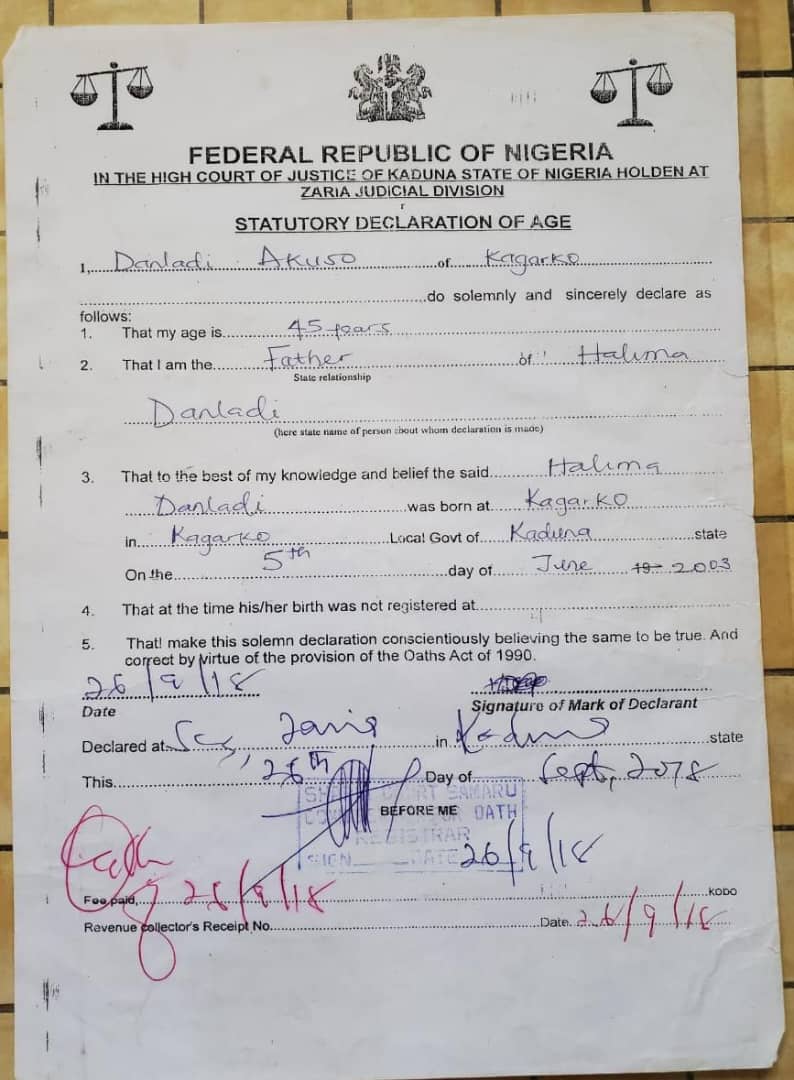 FEDERAL REPUBLIC OF NIGERIA
IN THE HIGH COURT OF JUSTICE OF KADUNA STATE OF NIGERIA HOLDEN AT
ZARIA JUDICIAL DIVISION
STATUTORY DECLARATION OF AGE
1,.....Danladi Akuso.....of.....Kagarko.....
.....do solemnly and sincerely declare as
follows:
1. That my age is.....45 years.....
2. That I am the.....Father.....of.....Halima.....
State relationship
Danladi
(here state name of person about whom declaration is made)
3. That to the best of my knowledge and belief the said.....Halima
Danladi.....was born at.....Kagarko
in.....Kagarko.....Local Govt of.....Kaduna.....state
On the.....5th.....day of.....June 19 2003
4. That at the time his/her birth was not registered at.....
5. That! make this solemn declaration conscientiously believing the same to be true. And
correct by virtue of the provision of the Oaths Act of 1990.
26/9/18
Date
Signature of Mark of Declarant
Declared at.....Zaria.....in.....Kaduna.....state
This.....26th.....Day of.....Sept, 2018
COURT SAMARU
BEFORE ME OATH
REGISTRAR
SIGN DATE 26/9/18
Fee paid,.....26/9/18.....KOBO
Revenue collector's Receipt No.....Date. 26/9/18